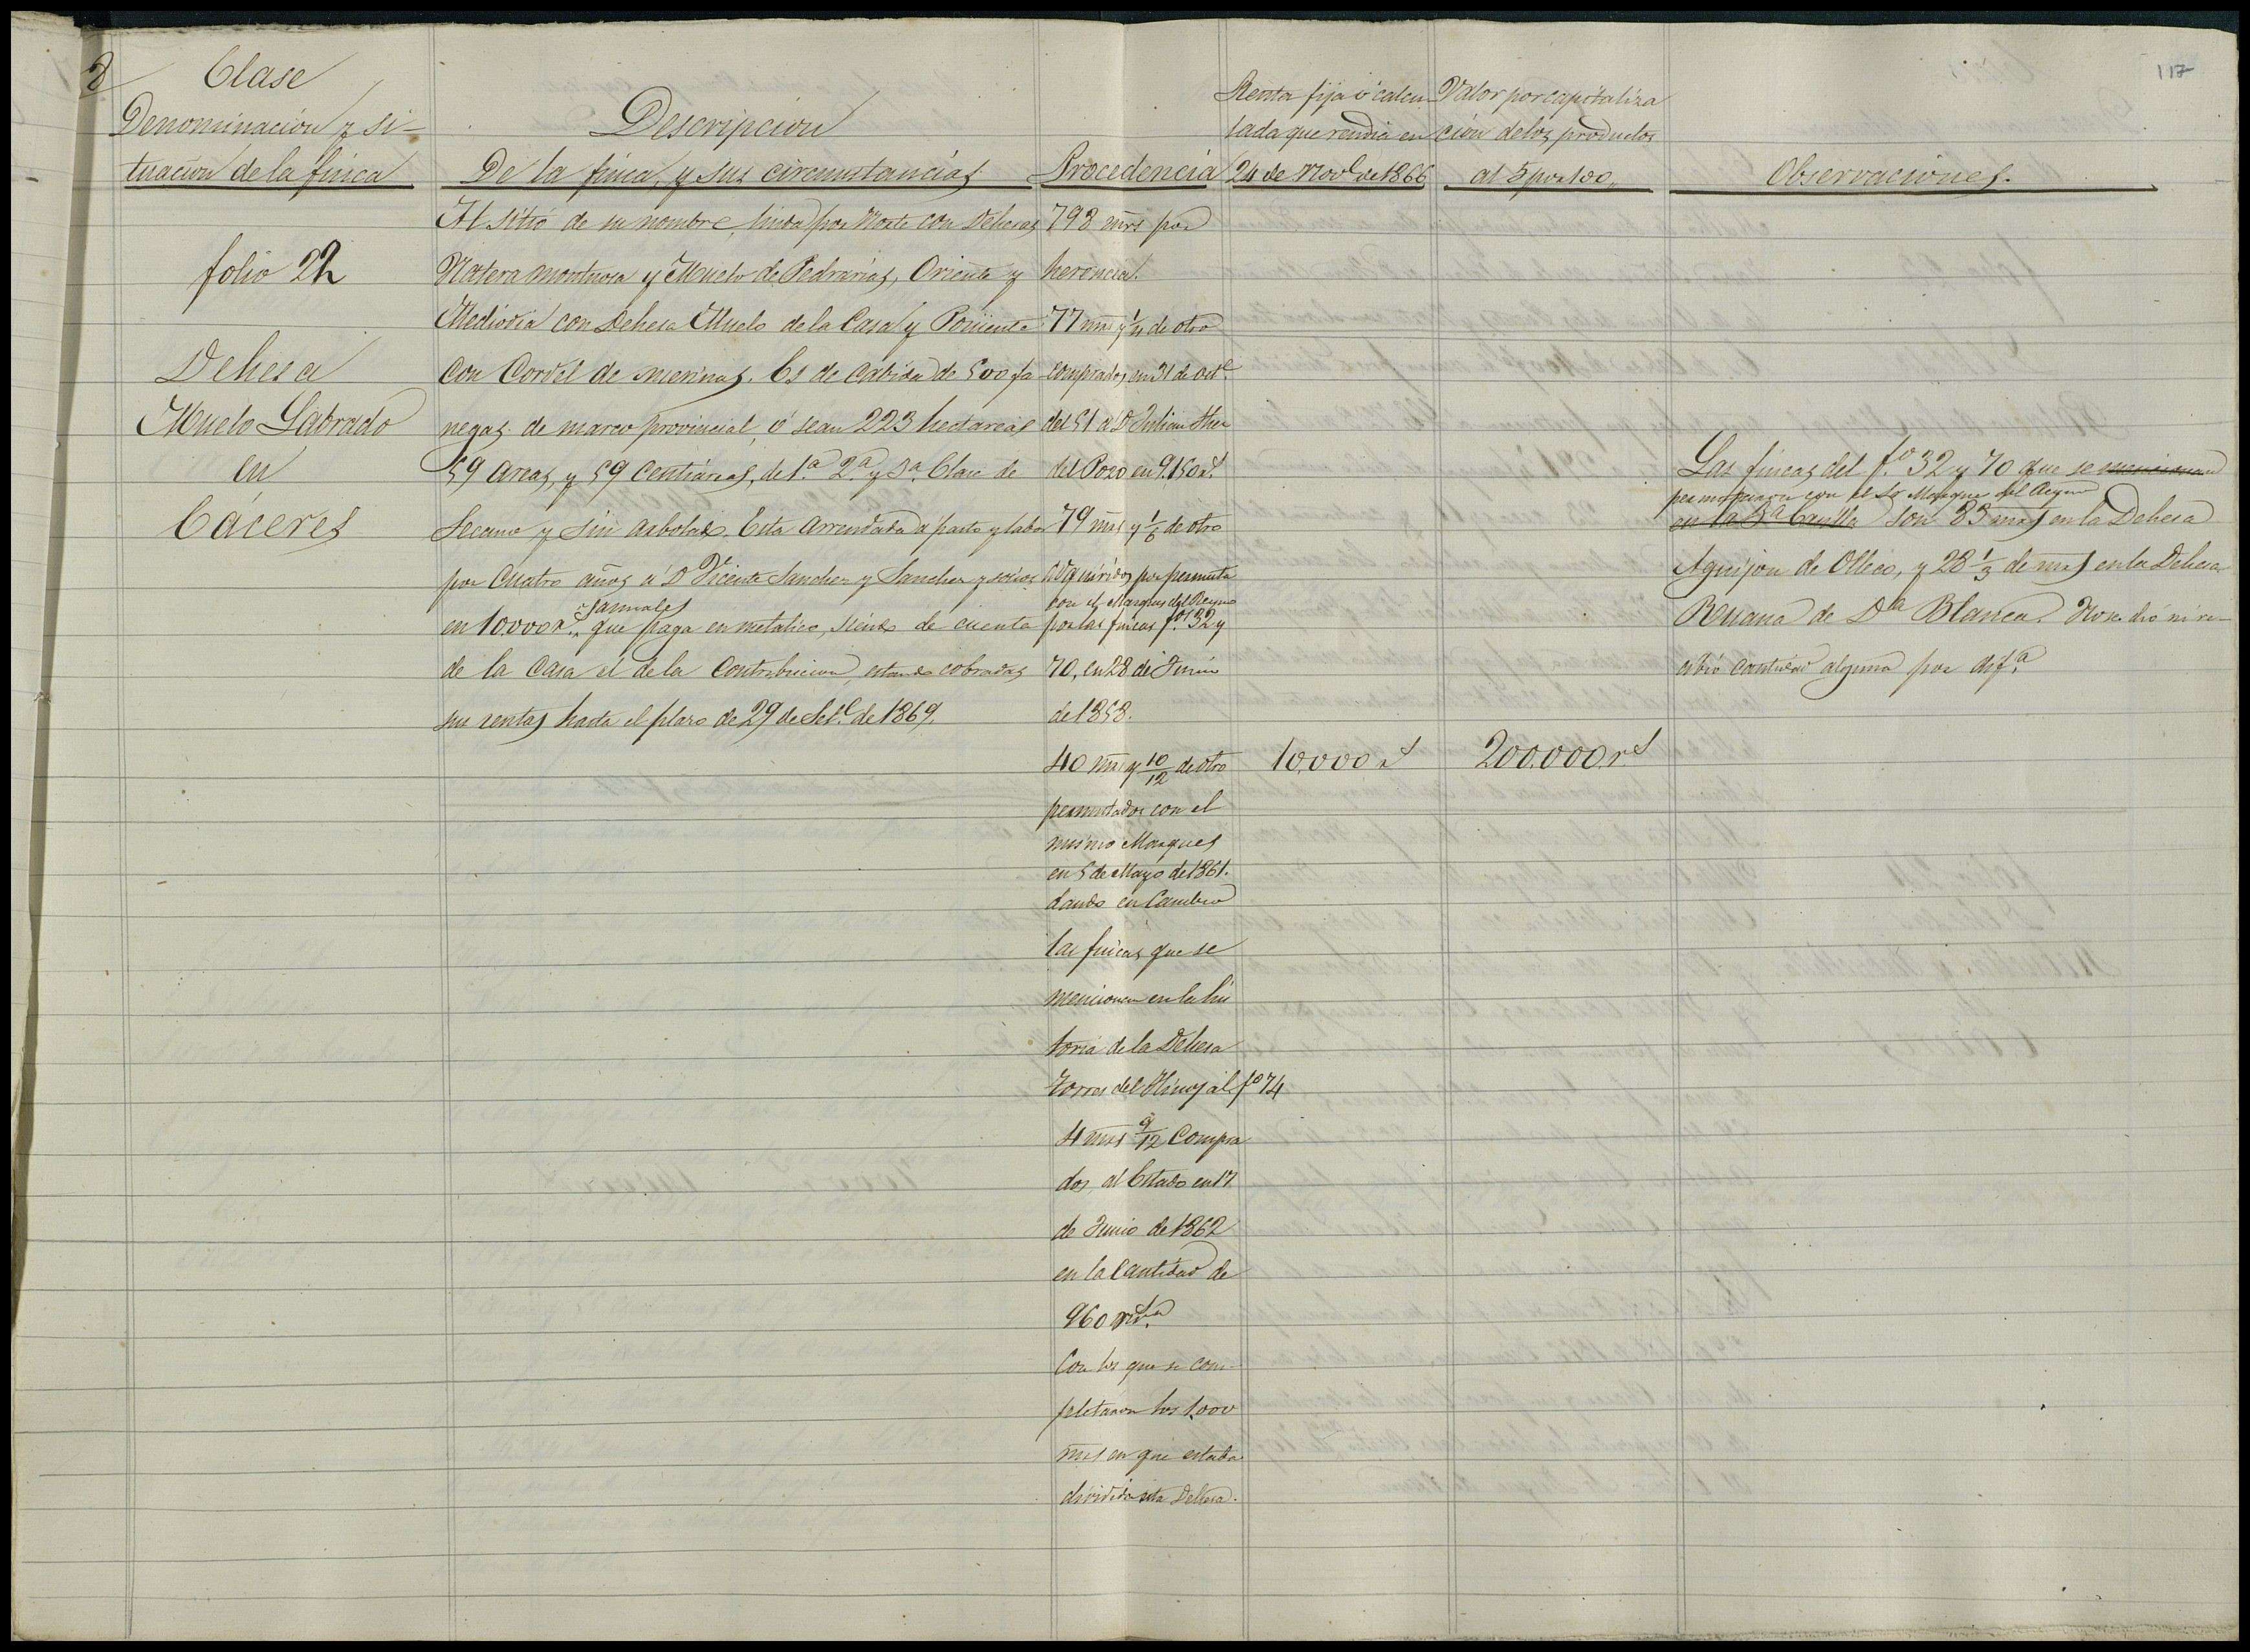 2
117
Clase
Denominacion y si-
tuacion de la finca
Descripcion
De la finca, y sus circunstancias
Procedencia
Renta fija ó calcu
lada que rendia en
24 de Nove de 1866
Valor por capitaliza
cion de los productos
al 5 por 100,
Observaciones.
folio 22
Dehesa
Muelo Labrado
en
Cáceres
Al sitio de su nombre, linda por Norte con Dehesas
Natera montuosa y Muelo de Pedrarias, Oriente y
Mediodia con Dehesa Muelo de la Casa y Poniente
con Cordel de merinas. Es de cabida de 500 fa
negas de marco provincial, ó sean 223 hectareas
59 areas, y 59 centiáreas, de 1.a 2.a y 3.a Clase de
Secano y sin arbolado. Esta arrendada á pasto y labor
por cuatro años á D Vicente Sanchez y Sanchez y socios
anuales
en 10.000 rs que paga en metalico, siendo de cuenta
de la Casa el de la Contribucion, estando cobradas
sus rentas hasta el plazo de 29 de Sete de 1869.
798 mrs por
herencia.
77 mrs y 1/4 de otro
comprados en 31 de octe
del 51 á D Julian
del Pozo en 9.150 rs
79 mrs y 1/6 de otro
adquiridos por permuta
con el Marques del Reyno
por las fincas fos 32 y
70, en 28 de Junio
de 1858.
40 mrs y 10/12 de otro
permutados con el
mismo Marques
en 5 de Mayo de 1861.
dando en Cambio
las fincas que se
mencionan en la his
toria de la Dehesa
Torres del Hinojal fo 74
4 mrs 9/12 Compra
dos al Estado en 17
de Junio de 1862
en la Cantidad de
960 rs
Con los que se com-
pletaron los 1.000
mrs en que estaba
dividida esta Dehesa.
10,000 rs
200.000 rs
Las fincas del f.o 32 y 70 que se mencionan
permutaron con el Sr Marques del Reyno
en la 3a Casilla son 83 mrs en la Dehesa
Aguijon de Olleco, y 28 1/3 de mrs en la Dehesa
Ruana de Da Blanca. No se dió ni re-
cibió cantidad alguna por dif.a